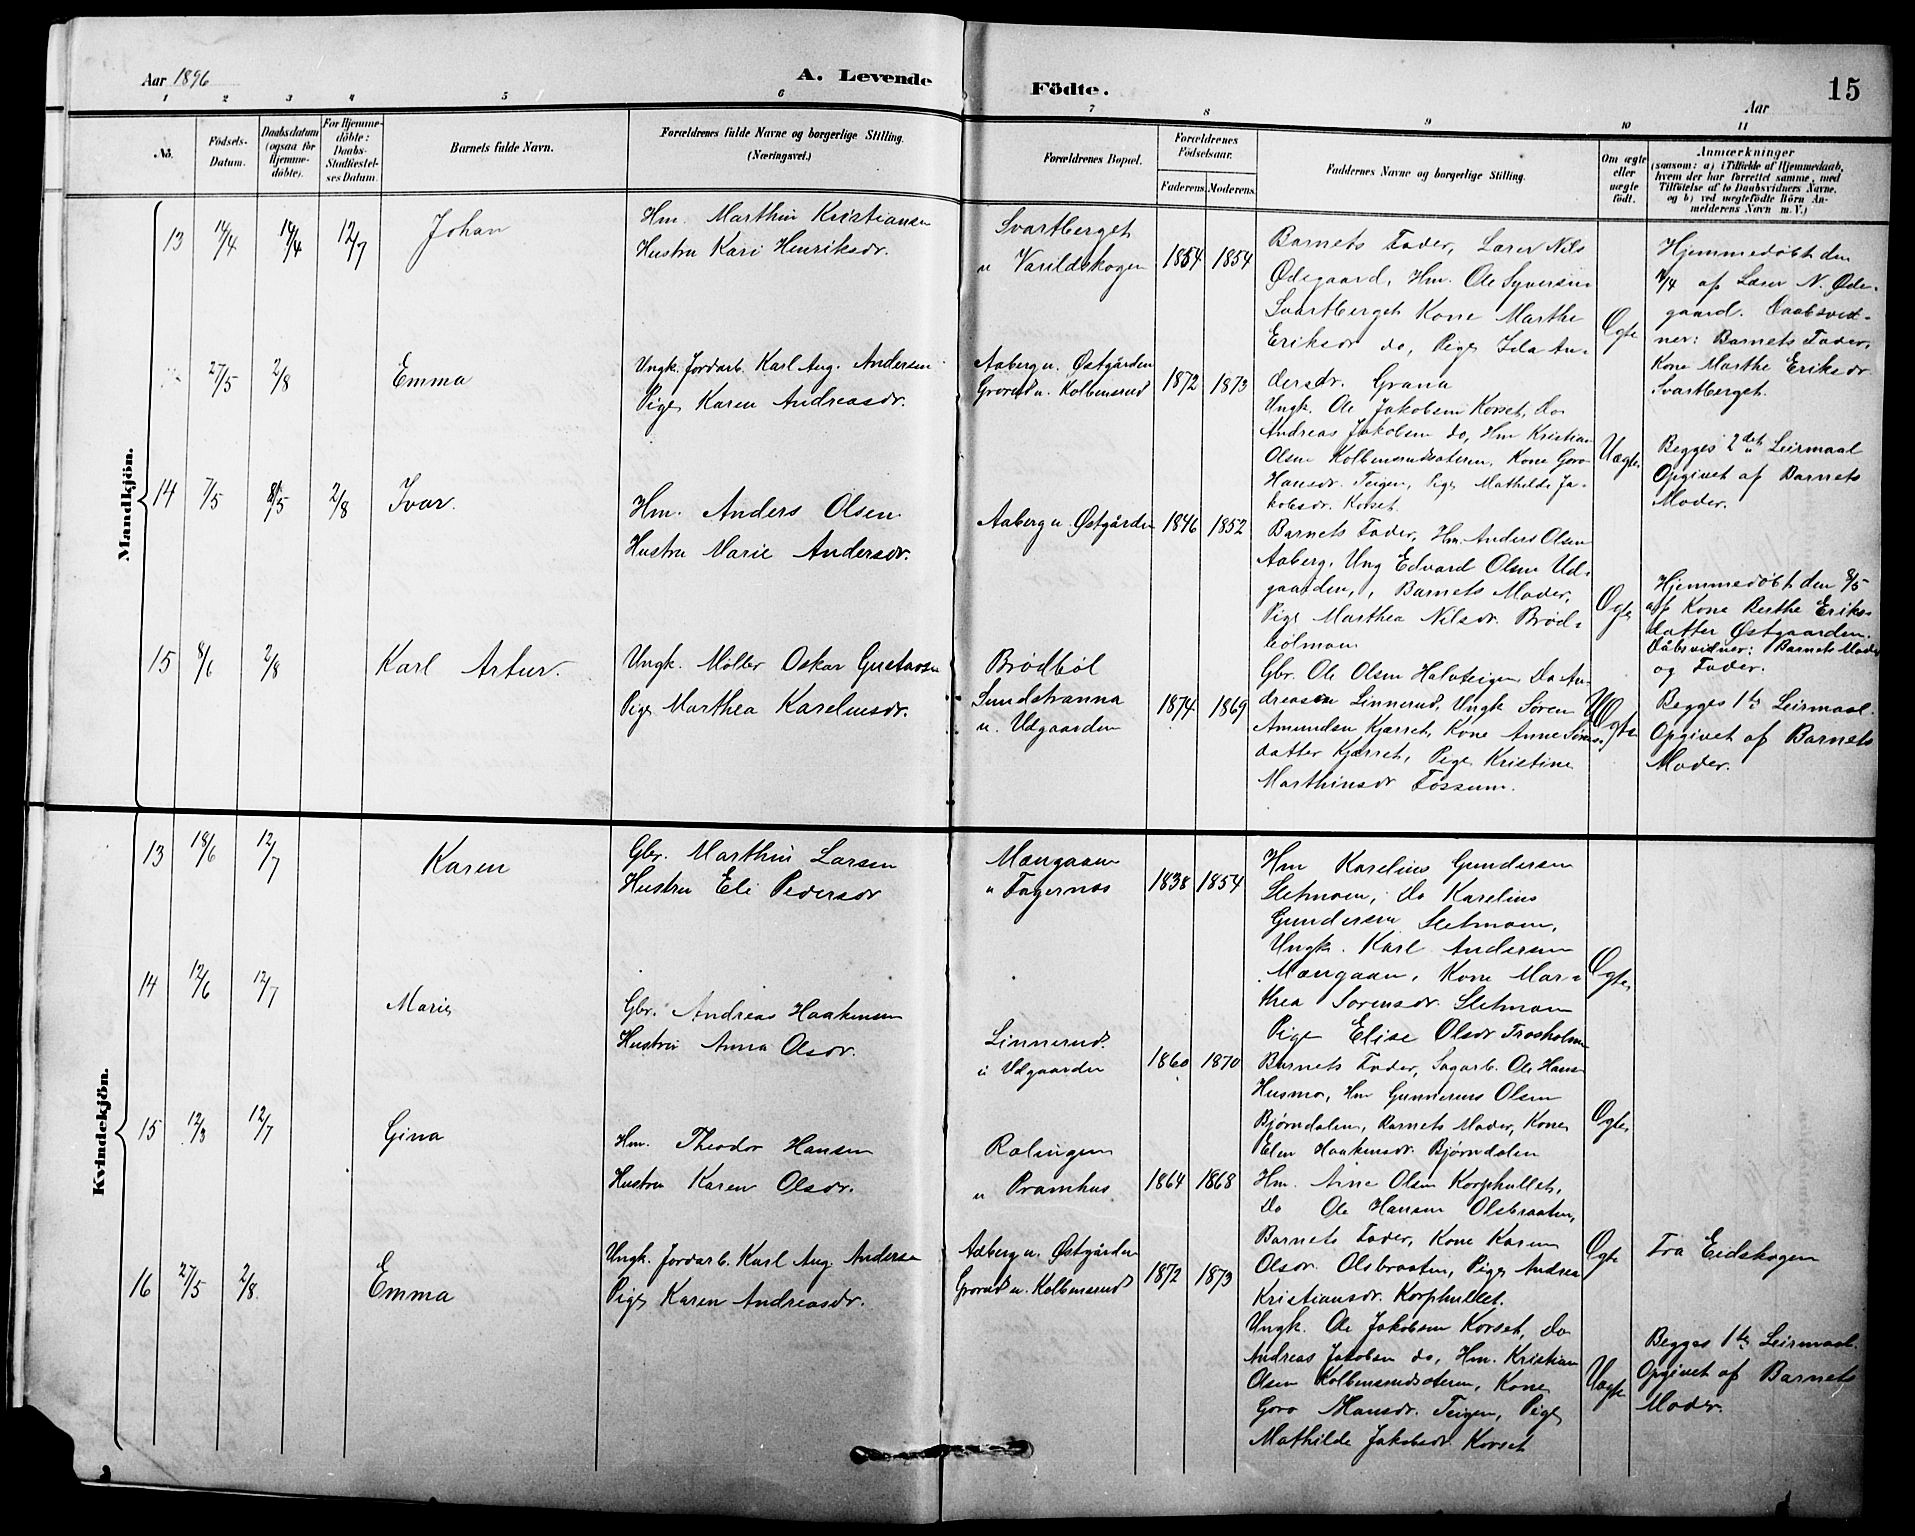 Aar 1896
A. Levende
Födte.
Aar
15
1 2 3 4 5 6 7 8 9 10 11
No.
Födsels-
Datum.
Daabsdatum
(ogsaa for
Hjemme-
döbte).
For Hjemme-
döbte:
Daabs-
Stadfæstel-
ses Datum.
Barnets fulde Navn.
Forældrenes fulde Navne og borgerlige Stilling.
(Næringsvei.)
Forældrenes Bopæl.
Forældrenes
Födselsaar.
Faderens.
Moderens.
Faddernes Navne og borgerlige Stilling.
Om ægte
eller
uægte
födt.
Anmærkninger
(saasom: a) i Tilfælde af Hjemmedaab,
hvem der har forrettet samme, med
Tilföielse af to Daabsvidners Navne,
og b) ved uægtefödte Börn An-
melderens Navn m. V.)
Mandkjön.
13 14/4 14/4 12/7 Johan
Hm. Marthin Kristiansen
Hustru Kari Henriksdr.
Svartberget
u Varildskogen
1854 1854
Barnets Fader, Lærer Nils
Ødegaard, Hm. Ole Syversen
Svartberget Kone Marthe
Eriksdr do, Pige Ida An-
dersdr. Grana
Ægte
Hjemmedøbt den
14/4 af Lærer N. Øde-
gaard. Daabsvid-
ner: Barnets Fader,
Kone Marthe Eriksdr
Svartberget.
27/5 2/8 Emma
Ungk. Jordarb. Karl Aug. Andersen
Pige Karen Andreasdr.
Aaberg u. Østgården
Grorud u. Kolbensrud
1872 1873
Ungk. Ole Jakobsen Korset, do
Andreas Jakobsen do, Hm Kristian
Olsen Kolbensrudsæteren, Kone Goro
Hansdr. Teigen, Pige Mathilde Ja-
kobsdr. Korset.
Uægte
Begges 2det Leirmaal
Opgivet af Barnets
Moder.
14 7/5 8/5 2/8 Ivar.
Hm. Anders Olsen
Hustru Marie Andersdr.
Aaberg u. Østgården
1846 1852
Barnets Fader, Hm. Anders Olsen
Aaberg, Ung Edvard Olsen Ud-
gaarden, Barnets Moder,
Pige Marthea Nilsdr. Brød-
bölmoen
Ægte
Hjemmedøbt den 8/5
af Kone Berthe Eriks-
datter Østgaarden.
Dåbsvidner: Barnets Moder
og Fader.
15 8/6 2/8 Karl Artur.
Ungk. Möller Oskar Gustavsen
Pige Marthea Karelиusdr.
Brødböl
Sundstranna
u. Udgaarden
1874 1869
Gbr. Ole Olsen Halvteigen, Do An-
dreasen Linnerud, Ungk Søren
Amundsen Kjærret, Kone Anne Sörens-
datter Kjærret, Pige Kristine
Marthinsdr Fossum.
Uægte
Begges 1te Leirmaal.
Opgivet af Barnets
Moder.
Kvindekjön.
13 18/6 12/7 Karen
Gbr. Marthin Larsen
Hustru Eli Pedersdr
Mængaaen
u Fagernæs
1838 1854
Hm Karelius Gundersen
Sletmoen, do Karelius
Gundersen Sletmoen,
Ungk. Karl Andersen
Mængaaen, Kone Mar-
thea Sörensdr. Sletmoen
Pige Elise Olsdr Trosholmen
Ægte
14 12/6 12/7 Marie
Gbr. Andreas Haakensen
Hustru Anna Olsdr.
Linnerud
u Udgaarden
1860 1870
Barnets Fader, Sagarb. Ole Hansen
Husmo, Hm Gunnerius Olsen
Bjørndalen, Barnets Moder, Kone
Elen Haakensdr. Bjørndalen
Ægte
15 12/3 12/7 Gina
Hm. Theodor Hansen
Hustru Karen Olsdr.
Rolingen
u Pramhus
1864 1868
Hm. Arne Olsen Korphullet,
Do Ole Hansen Olsbraaten,
Barnets Fader, Kone Karen
Olsdr. Olsbraaten, Pige Andrea
Kristiansdr. Korphullet.
Ægte
Fra Eidskogen
16 27/5 2/8. Emma
Ungk. Jordarb. Karl Aug. Andersen
Pige Karen Andreasdr.
Aaberg u. Østgården
Grorud u. Kolbensrud
1872 1873
Ungk. Ole Jakobsen Korset, do
Andreas Jakobsen do, Hm. Kristian
Olsen Kolbensrudsæteren, Kone
Goro Hansdr. Teigen, Pige
Mathilde Jakobsdr Korset
Uægte
Begges 1te Leirmaal.
Opgivet af Barnets
Moder.